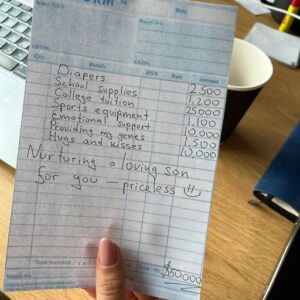 Diapers 2,500
School supplies 1,200
College tuition 25000
Sports equipment 1,100
Emotional support 10,000
Providing my genes 500
Hugs and kisses 10,000
Nurturing a loving son
for you – priceless
$50000